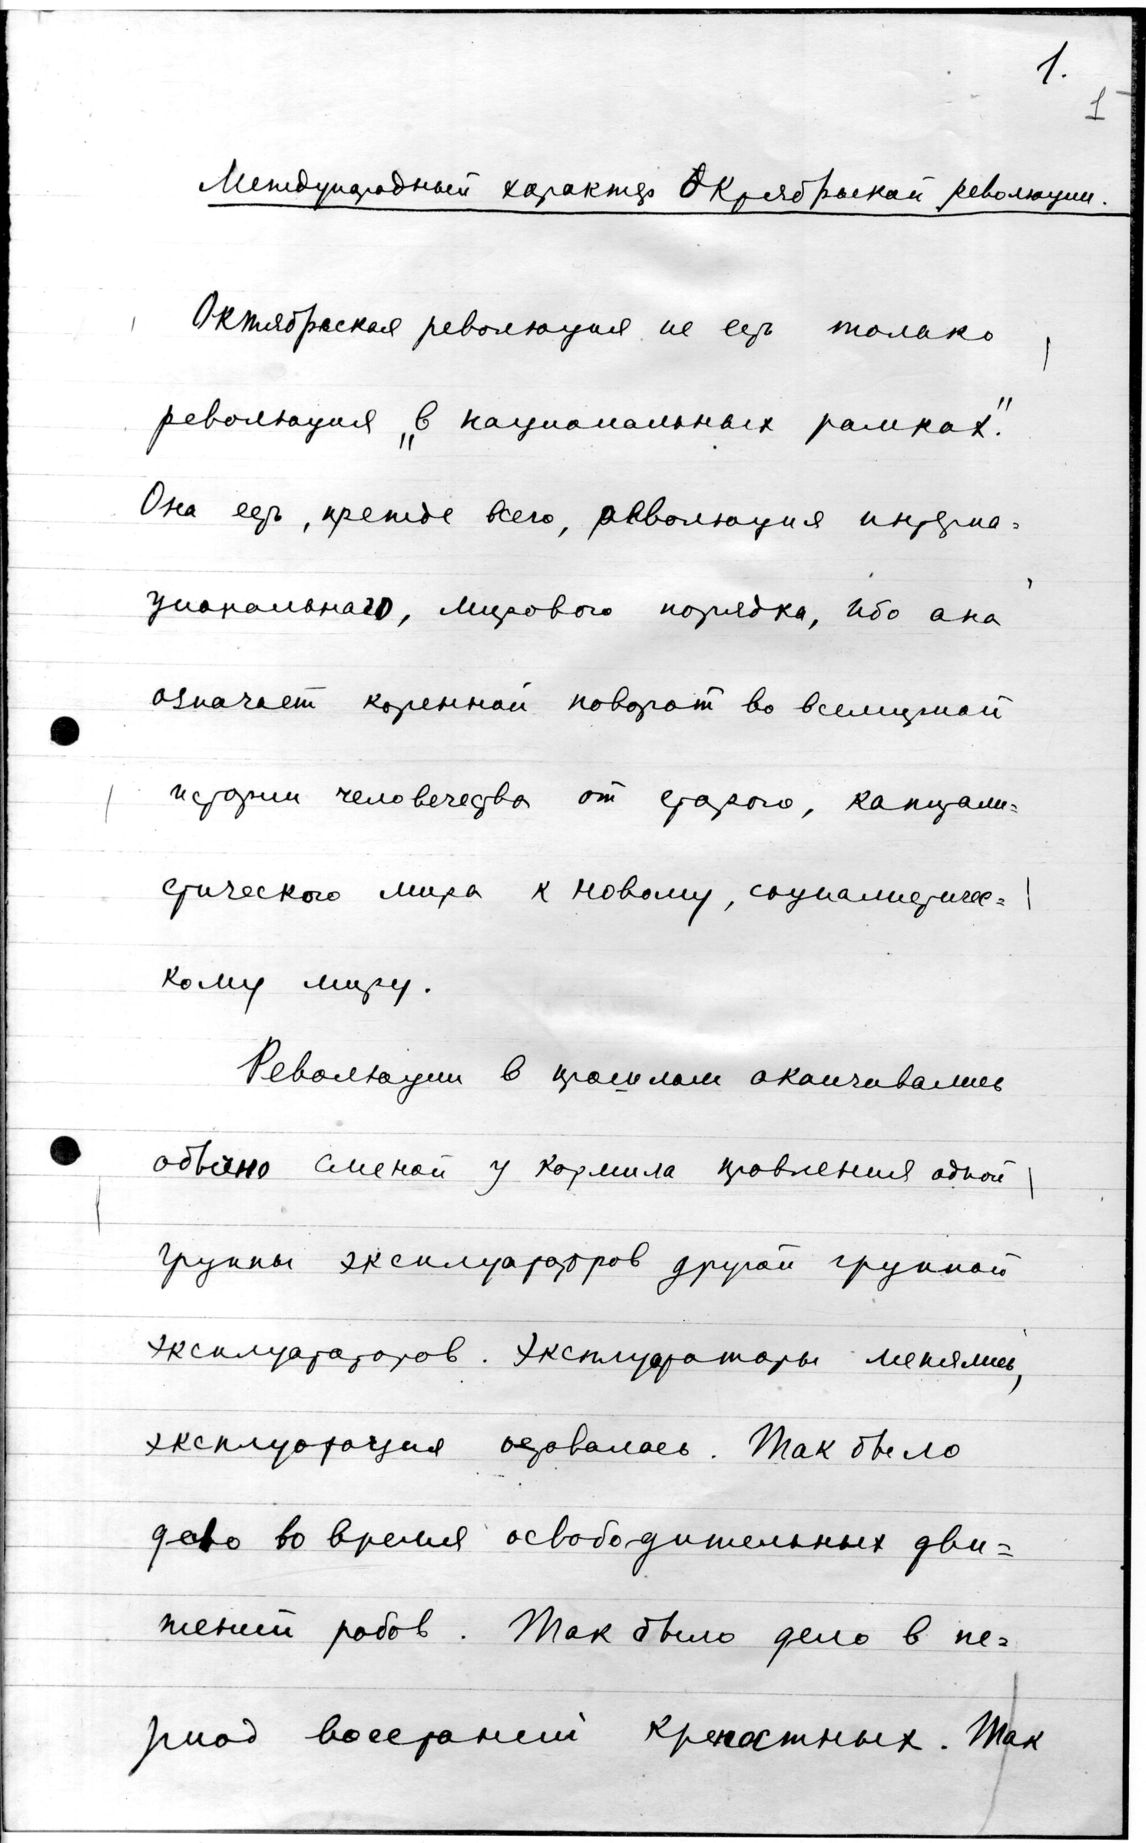 1.
1
Международный характер Октябрьской революции.
Октябрьская революция не есть только
революция „в национальных рамках".
Она есть, прежде всего, революция интерна=
ционального, мирового порядка, ибо она
означает коренной поворот во всемирной
истории человечества от старого, капитали=
стического мира к новому, социалистичес=
кому миру.
Революции в прошлом оканчивались
обычно сменой у кормила правления одной
группы эксплуататоров другой группой
эксплуататоров. Эксплуататоры менялись,
эксплуатация оставалась. Так было
дело во время освободительных дви=
жений рабов. Так было дело в пе=
риод восстаний крепостных. Так